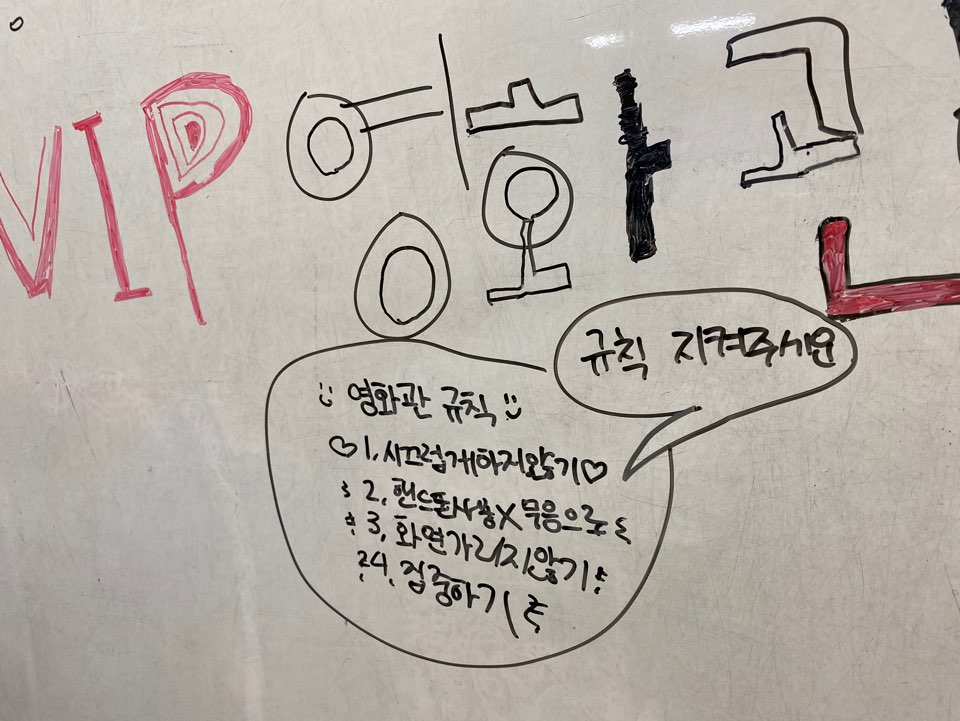 VIP 영화관
규칙 지켜주시요
영화관 규칙
1. 시끄럽게하지않기
2. 핸드폰사용X 무음으로
3. 화면가리지않기
4. 집중하기